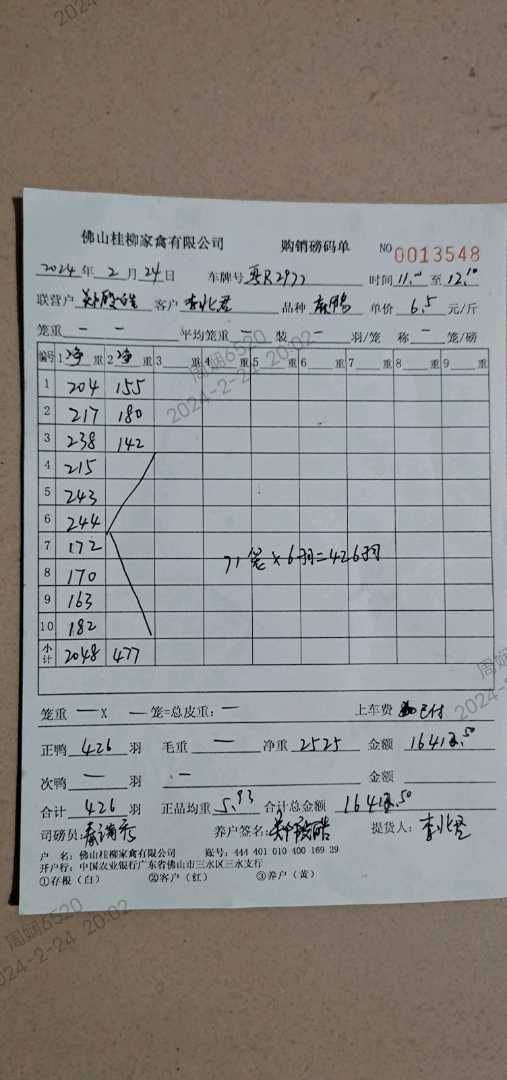 佛山桂柳家禽有限公司 购销磅码单 NO 0013548
2024年 2月 24日 车牌号 粤R2977 时间 11.00 至 12.10
联营户 客户 李北君 品种 麻鸭 单价 6.5 元/斤
笼重 — — 平均笼重 — 装 — 羽/笼 称 — 笼/磅
编号 1 净 重 2 净 重 3 重 4 重 5 重 6 重 7 重 8 重 9 重
1 204 155
2 217 180
3 238 142
4 215
5 243
6 244
7 172
71笼×6羽=426羽
8 170
9 163
10 182
小计 2048 477
笼重 — X — 笼=总皮重: — 上车费 已付
正鸭 426 羽 毛重 — 净重 2525 金额 16412.50
次鸭 — 羽 — 金额
合计 426 羽 正品均重 5.93 合计总金额 16412.50
司磅员: 养户签名: 提货人: 李北君
户 名: 佛山桂柳家禽有限公司 账号: 444 401 010 400 169 29
开户行: 中国农业银行广东省佛山市三水区三水支行
①存根(白) ②客户(红) ③养户(黄)
周娴6520
2024-2-24 20:02